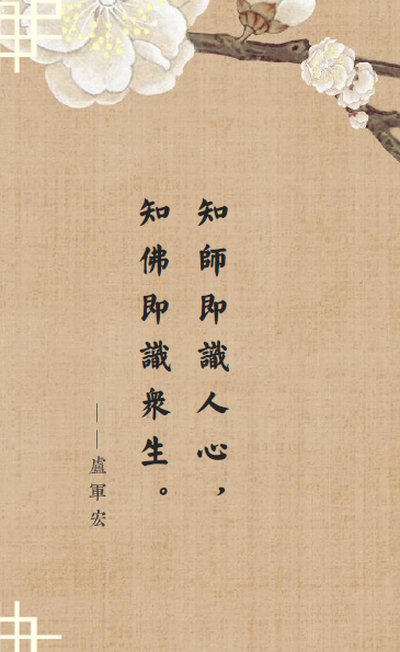 知師即識人心，
知佛即識衆生。
——盧軍宏